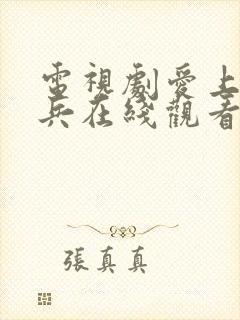 電視劇愛上
兵在綫觀看
張真真